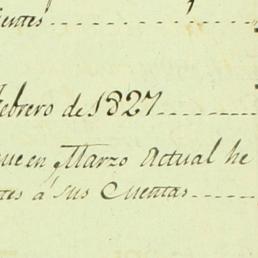 ientes
ebrero de 1827
que en Marzo Actual he
tes á sus Cuentas